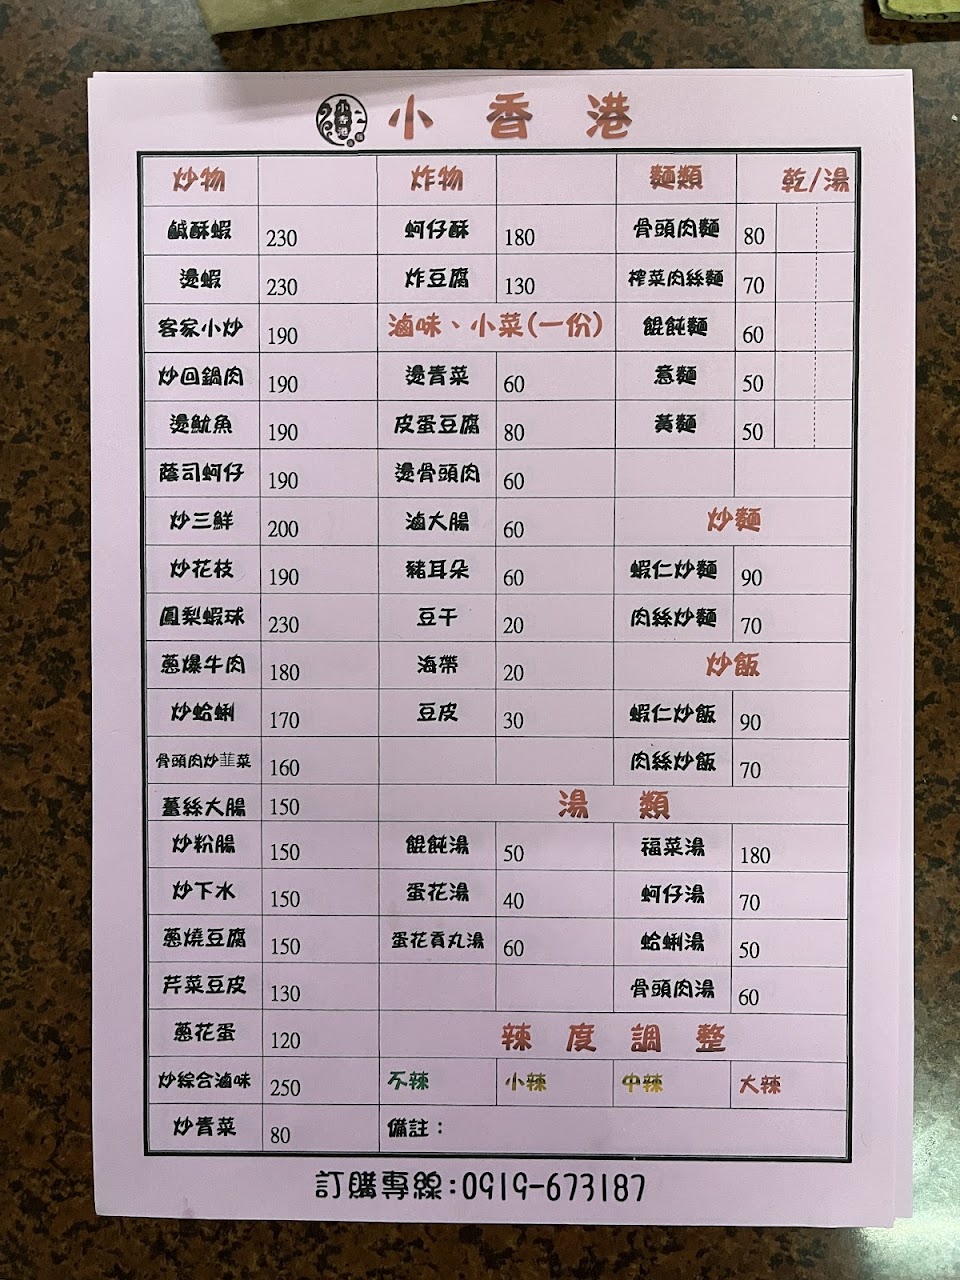 小香港
小香港
炒物 炸物 麵類 乾/湯
鹹酥蝦 230 蚵仔酥 180 骨頭肉麵 80
燙蝦 230 炸豆腐 130 榨菜肉絲麵 70
客家小炒 190 滷味、小菜(一份) 餛飩麵 60
炒回鍋肉 190 燙青菜 60 意麵 50
燙魷魚 190 皮蛋豆腐 80 黃麵 50
蔭司蚵仔 190 燙骨頭肉 60
炒三鮮 200 滷大腸 60 炒麵
炒花枝 190 豬耳朵 60 蝦仁炒麵 90
鳳梨蝦球 230 豆干 20 肉絲炒麵 70
蔥爆牛肉 180 海帶 20 炒飯
炒蛤蜊 170 豆皮 30 蝦仁炒飯 90
骨頭肉炒韮菜 160 肉絲炒飯 70
薑絲大腸 150 湯類
炒粉腸 150 餛飩湯 50 福菜湯 180
炒下水 150 蛋花湯 40 蚵仔湯 70
蔥燒豆腐 150 蛋花貢丸湯 60 蛤蜊湯 50
芹菜豆皮 130 骨頭肉湯 60
蔥花蛋 120 辣度調整
炒綜合滷味 250 不辣 小辣 中辣 大辣
炒青菜 80 備註：
訂購專線:0919-673187